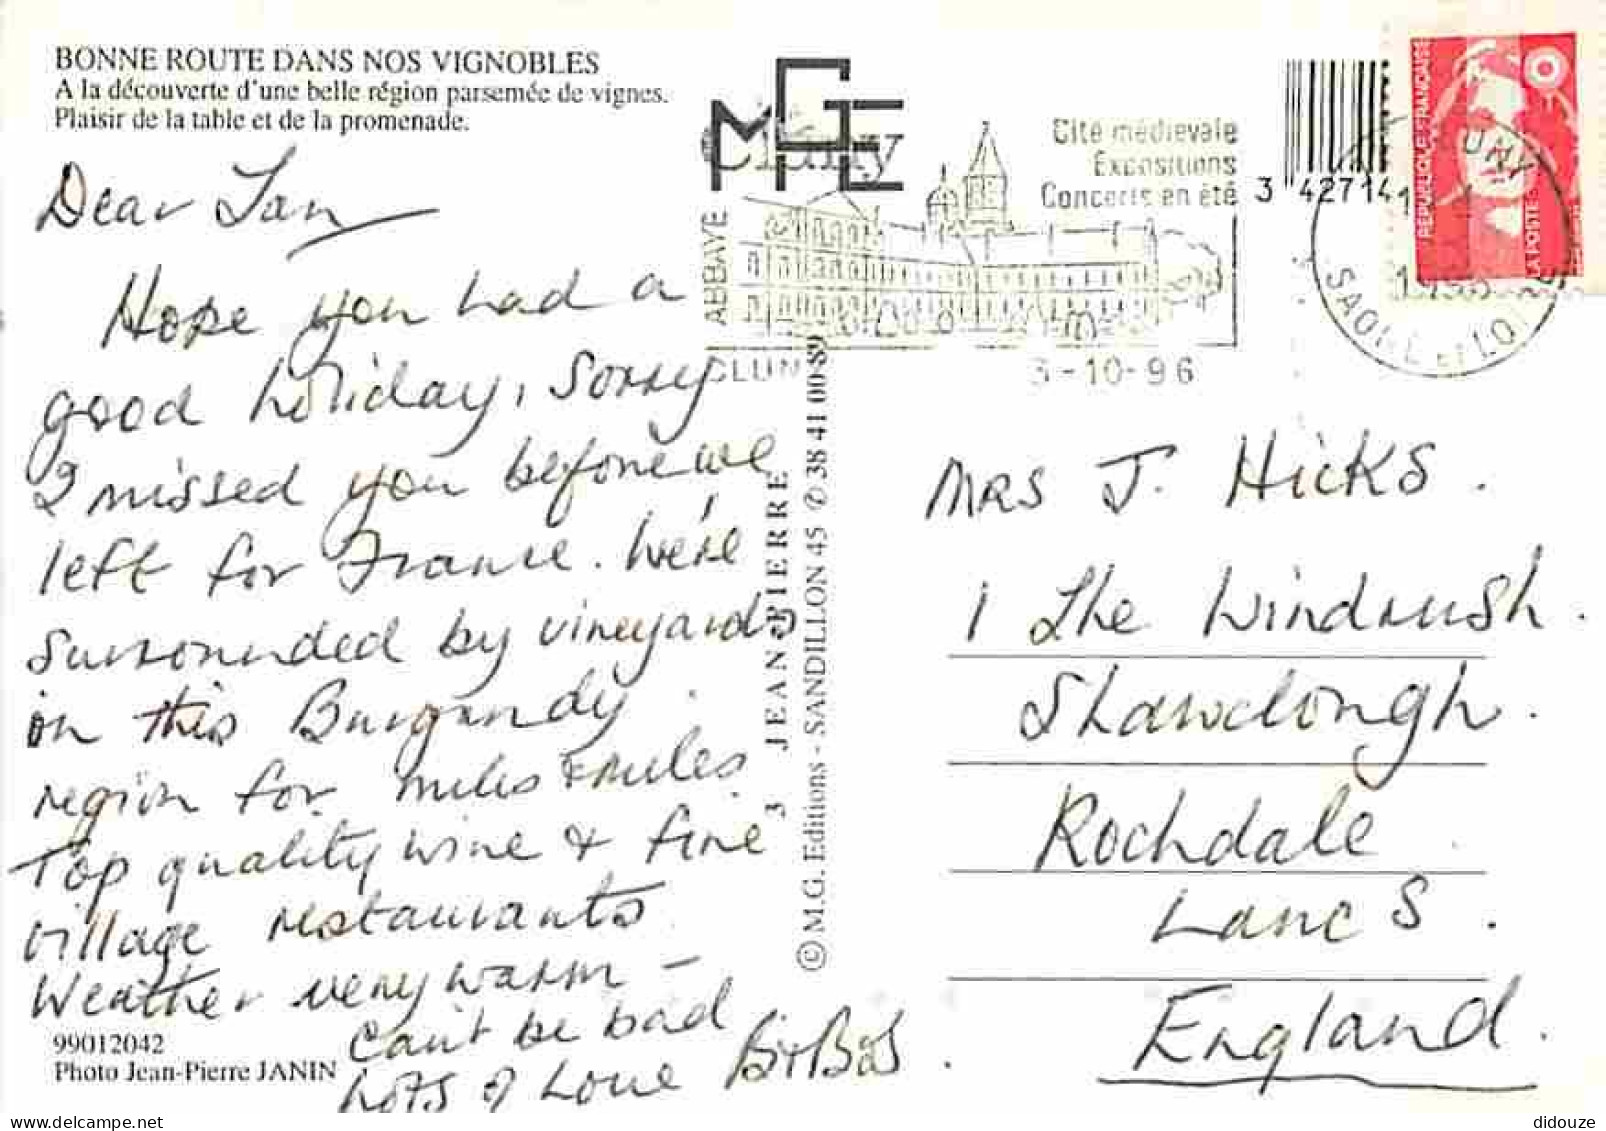 BONNE ROUTE DANS NOS VIGNOBLES
A la découverte d'une belle région parsemée de vignes.
Plaisir de la table et de la promenade.
Dear Jan
Hope you had a
good holiday, Sorry
I missed you before we
left for France. We're
surrounded by vineyards
in this Burgundy
region for miles & miles
Top quality wine & fine
village restaurants
Weather very warm -
can't be bad
Lots of Love
99012042
Photo Jean-Pierre JANIN
MGE
Cluny
Cité médievale
Expositions
Concerts en été
ABBAYE
CLUNY
-10-96
3 427714
RÉPUBLIQUE FRANÇAISE
LA POSTE
SAONE et LOIRE
3 JEAN PIERRE
© M.G. Editions - SANDILLON 45 ✆ 38 41 00 89
Mrs J. Hicks.
1 The Windrush.
Shawclough.
Rochdale
Lancs.
England.
didouze